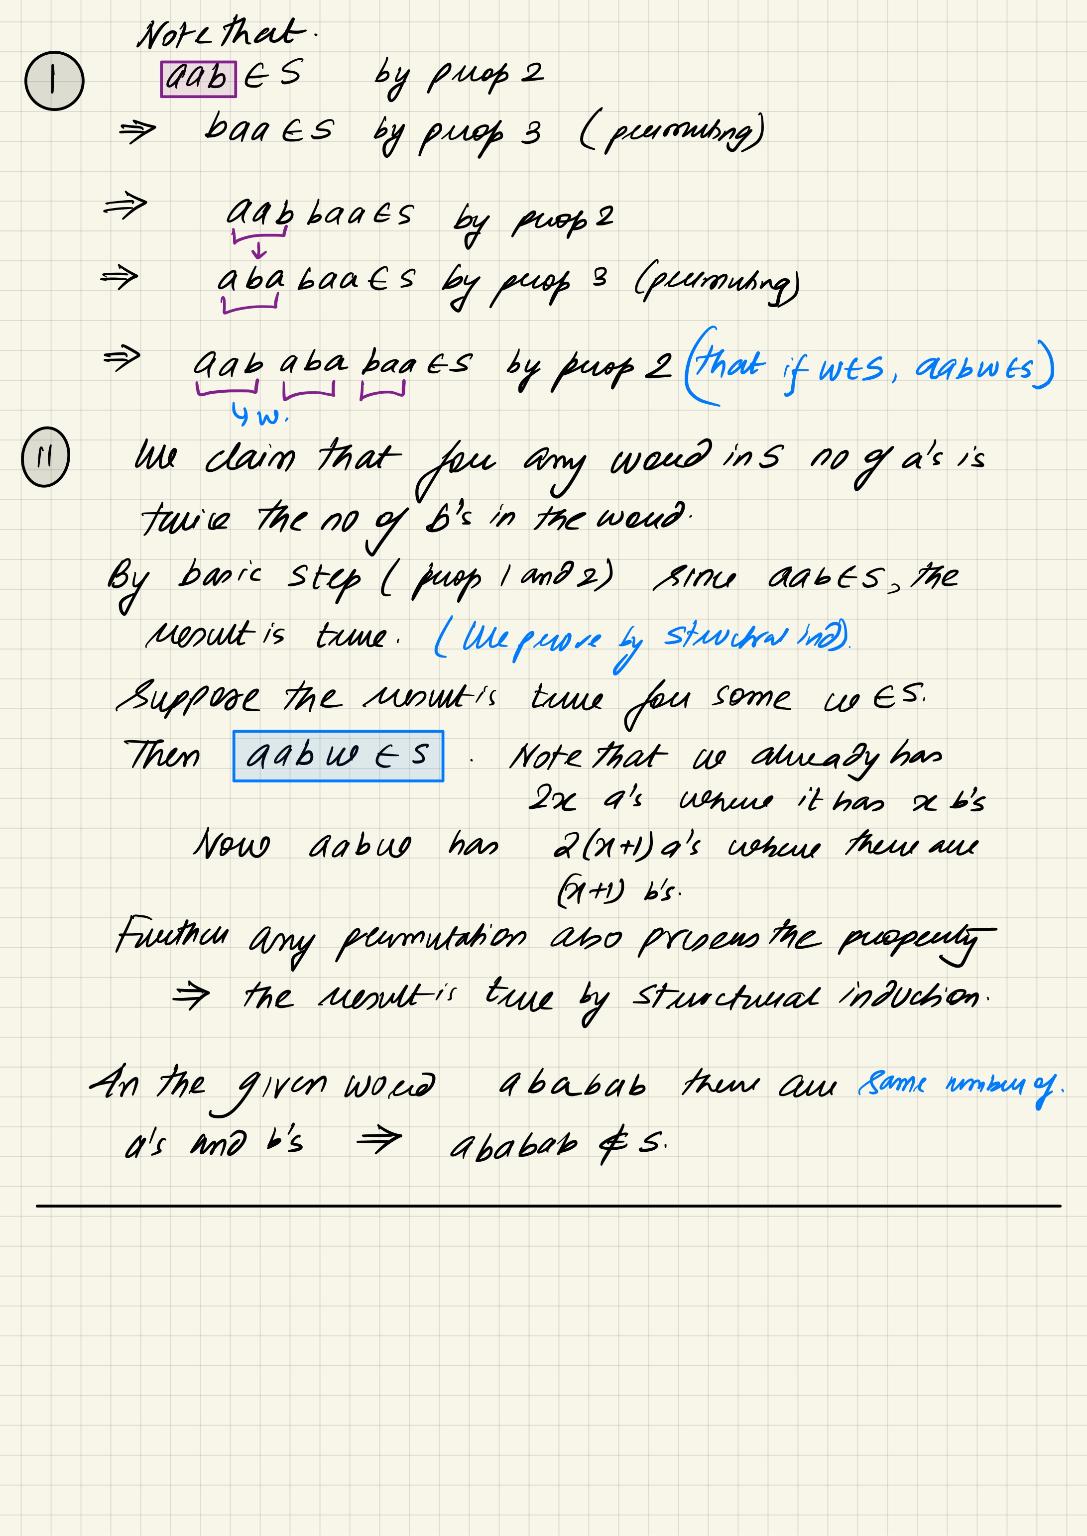 Note that.
I aab ∈ S by prop 2
⇒ baa ∈ S by prop 3 (permuting)
⇒ aab baa ∈ S by prop 2
⇒ aba baa ∈ S by prop 3 (permuting)
⇒ aab aba baa ∈ S by prop 2 (that if w ∈ S, aabw ∈ S)
↳ w.
II We claim that for any word in S no of a's is
twice the no of b's in the word.
By basic step (prop 1 and 2) since aab ∈ S, the
result is true. (We prove by structural ind).
Suppose the result is true for some w ∈ S.
Then aabw ∈ S. Note that w already has
2x a's where it has x b's
Now aabw has 2(x+1) a's where there are
(x+1) b's.
Further any permutation also preserves the property
⇒ the result is true by structural induction.
In the given word ababab there are same number of.
a's and b's ⇒ ababab ∉ S.